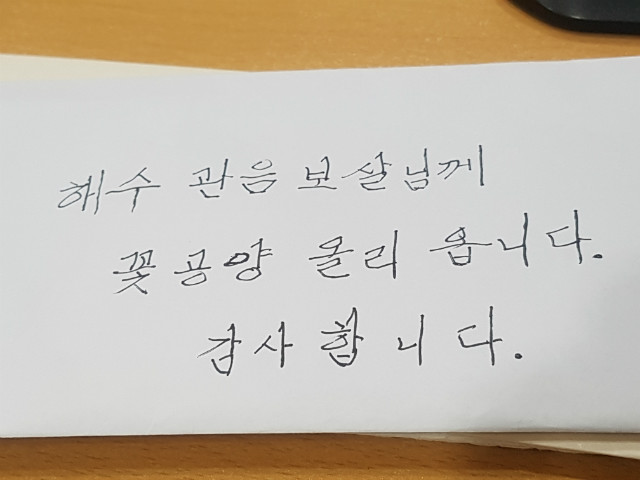 해수 관음 보살님께
꽃공양 올리 옵니다.
감사합니다.